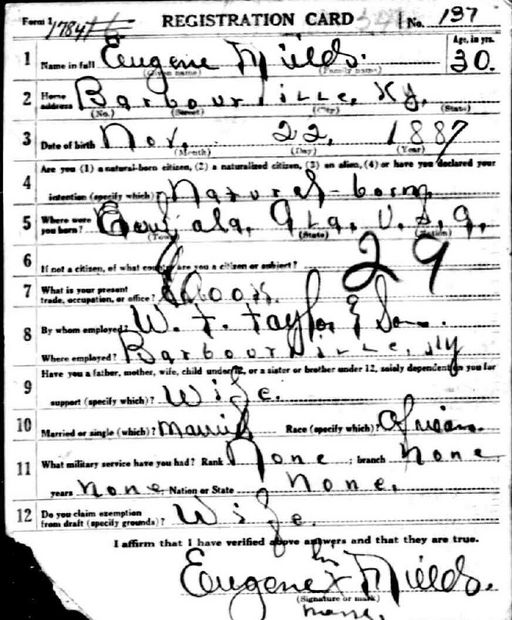 Form 1 1784 REGISTRATION CARD No. 137
1 Name in full Eugene Mields. Age, in yrs. 30.
(Given name) (Family name)
2 Home address Barbourville, Ky.
(No.) (Street) (City) (State)
3 Date of birth Nov. 22, 1887
(Month) (Day) (Year)
4 Are you (1) a natural-born citizen, (2) a naturalized citizen, (3) an alien, (4) or have you declared your
intention (specify which)? Natural-born
5 Where were you born? Ala. U.S.A.
(Town) (State) (Nation)
6 If not a citizen, of what country are you a citizen or subject? 29
7 What is your present trade, occupation, or office?
8 By whom employed? W. F. Taylor & Son.
Where employed? Barbourville, Ky
9 Have you a father, mother, wife, child under 12, or a sister or brother under 12, solely dependent on you for
support (specify which)? Wife.
10 Married or single (which)? Married Race (specify which)? African.
11 What military service have you had? Rank None ; branch None
years None Nation or State None.
12 Do you claim exemption from draft (specify grounds)? Wife.
I affirm that I have verified above answers and that they are true.
Eugene X Mields.
(Signature or mark)